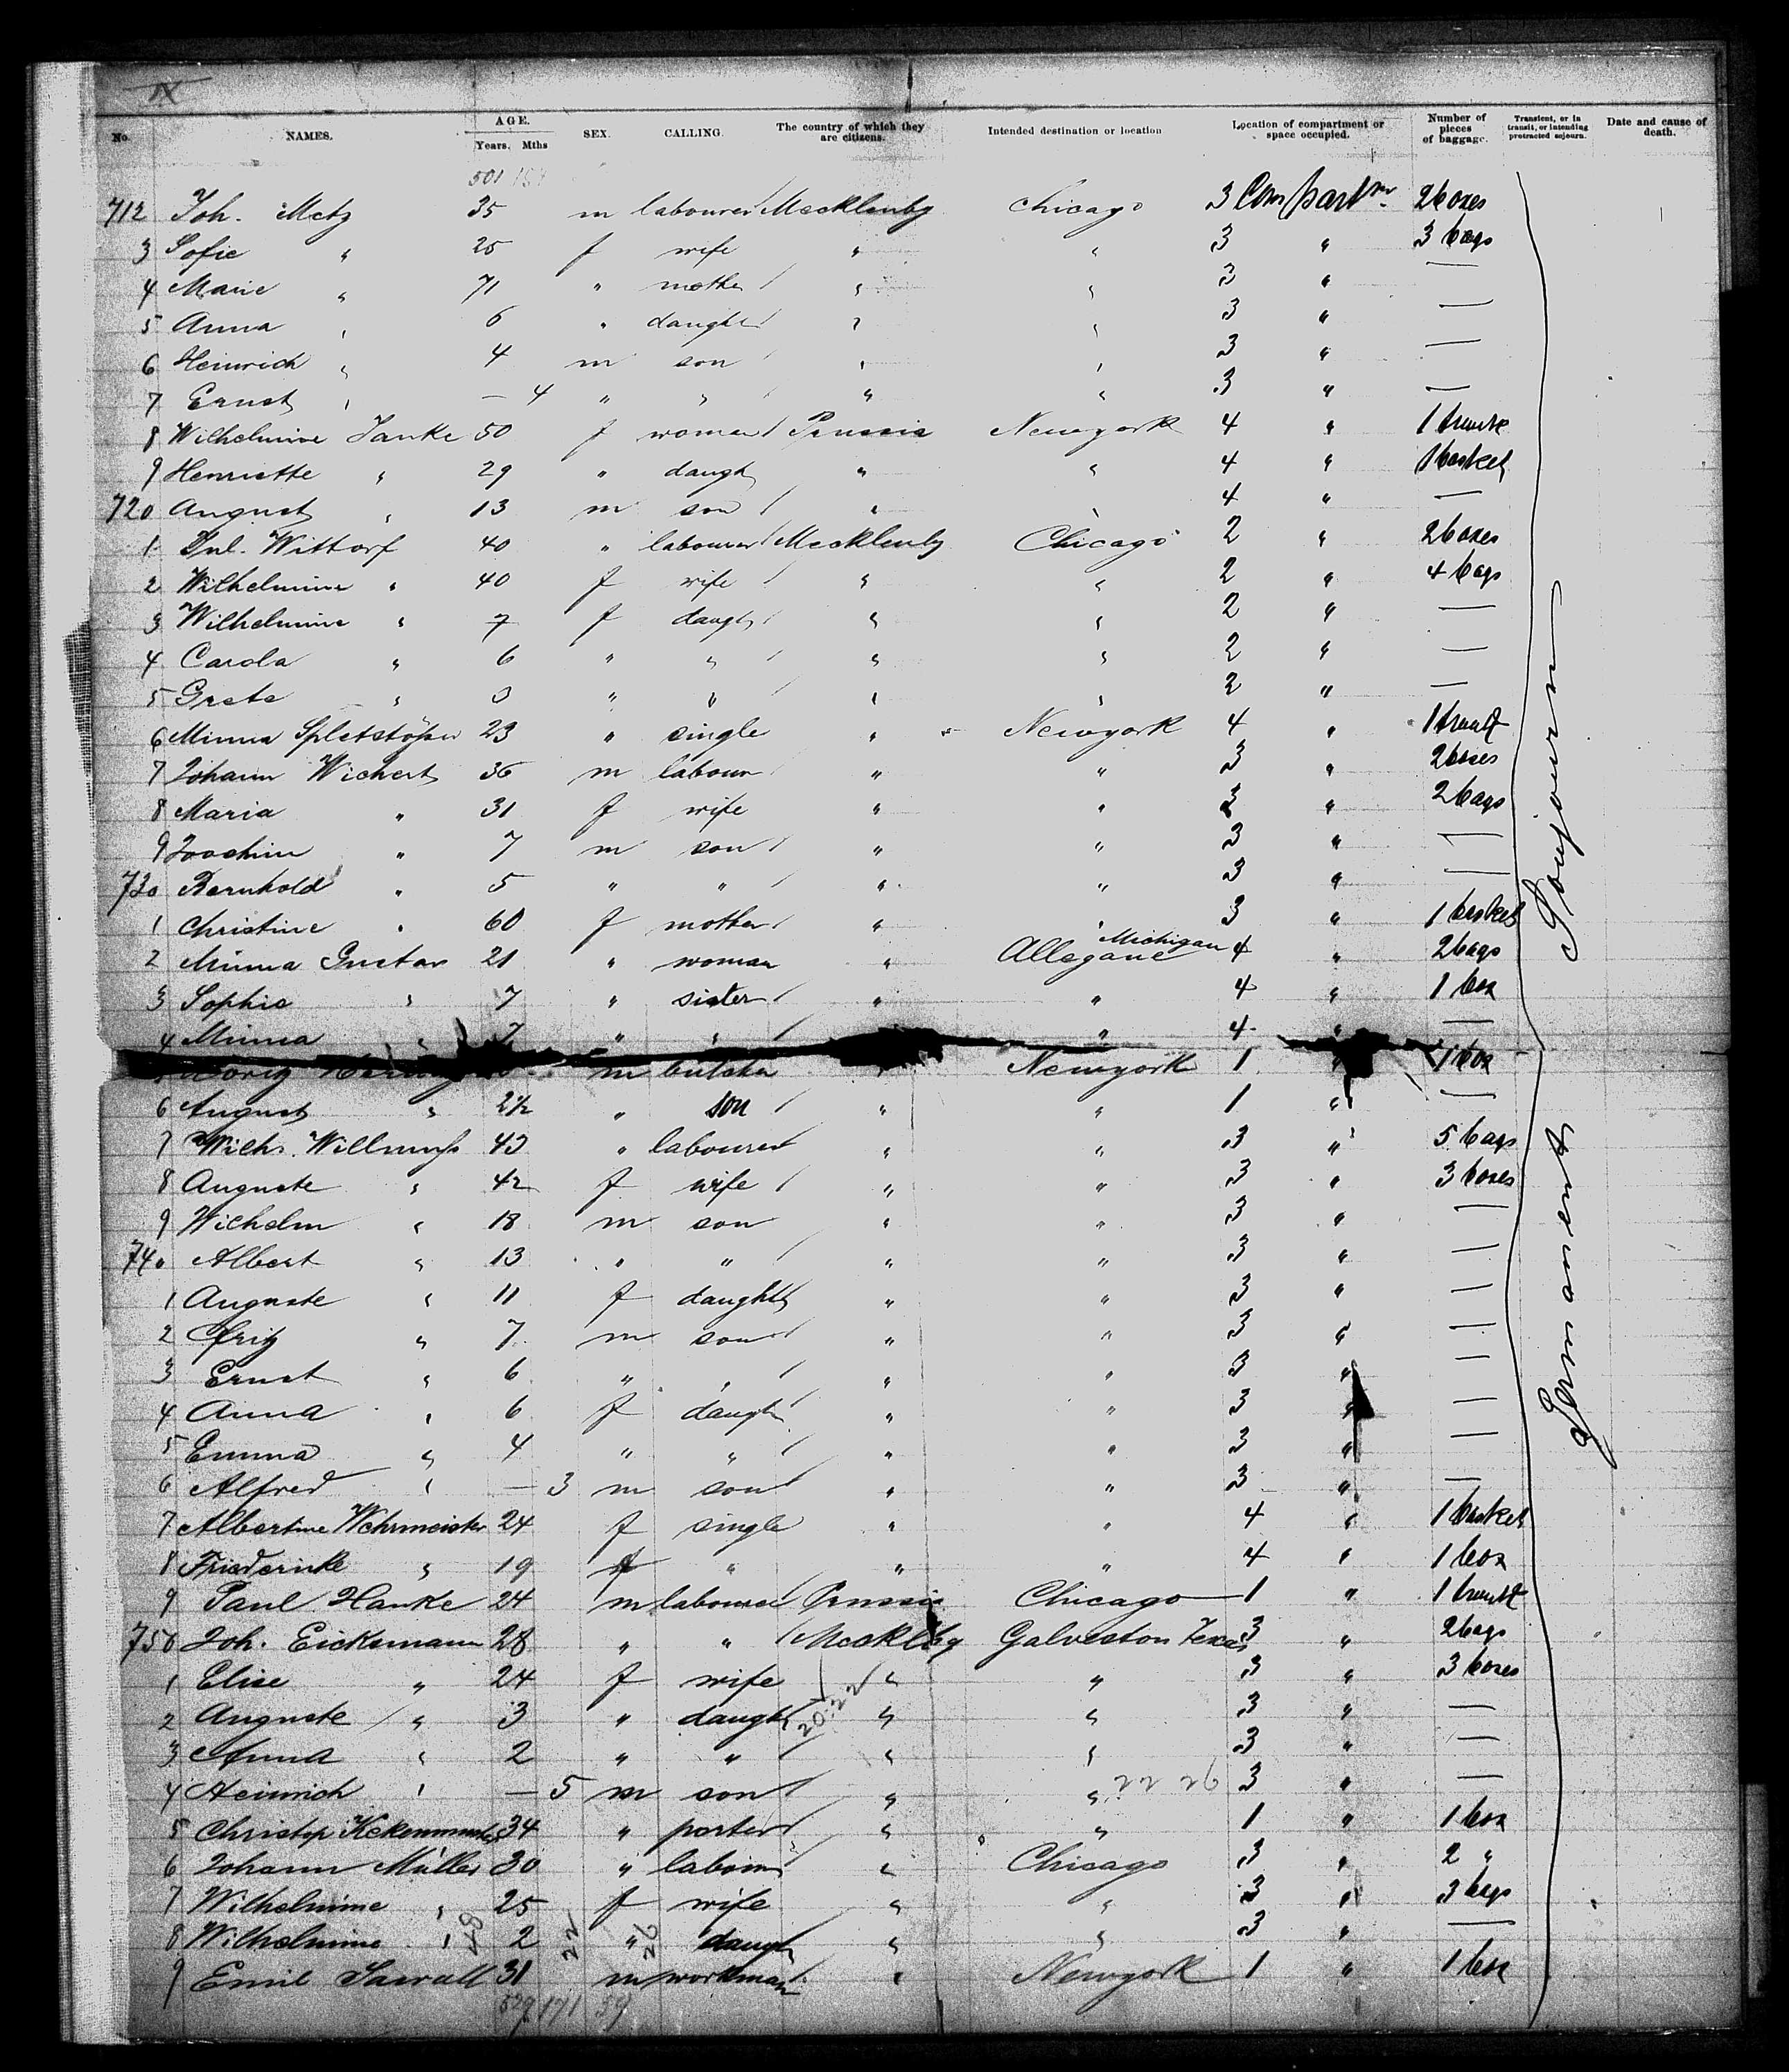 IX
No. NAMES. AGE. Years. Mths SEX. CALLING. The country of which they are citizens. Intended destination or location Location of compartment or space occupied. Number of pieces of baggage. Transient, or in transit, or intending protracted sojourn. Date and cause of death.
501
712 Joh. Metz 35 m labourer Mecklenbg Chicago 3 Compartm. 2 boxes
3 Sofie " 25 f wife " " 3 " 3 bags
4 Marie " 71 " mother " " 3 " —
5 Anna " 6 " daughter " " 3 " —
6 Heinrich " 4 m son " " 3 " —
7 Ernst " — 4 " " " " 3 " —
8 Wilhelmine Janke 50 f woman Prussia Newyork 4 " 1 trunk
9 Henriette " 29 " daught " " 4 " 1 basket
720 August " 13 m son " " 4 " —
1 Jul. Wittorf 40 " labourer Mecklenbg Chicago 2 " 2 boxes
2 Wilhelmine " 40 f wife " " 2 " 4 bags
3 Wilhelmine " 7 f daught " " 2 " —
4 Carola " 6 " " " " 2 " —
5 Grete " 3 " " " " 2 " —
6 Minna Spletstöser 23 " single " Newyork 4 " 1 trunk
7 Johann Wichert 36 m labour " " 3 " 2 boxes
8 Maria " 31 f wife " " 3 " 2 bags
9 Joachim " 7 m son " " 3 " —
730 Bernhold " 5 " " " " 3 " —
1 Christine " 60 f mother " " 3 " 1 basket
2 Minna Gustav 21 " woman " Allegane Michigan 4 " 2 bags
3 Sophie " 7 " sister " " 4 " 1 box
4 Minna " 7 " " " " 4 " —
m butcher " Newyork 1 " 1 box
6 August " 2½ " son " " 1 " —
7 Wilh. 43 " labourer " " 3 " 5 bags
8 Auguste " 42 f wife " " 3 " 3 boxes
9 Wilhelm " 18 m son " " 3 " —
740 Albert " 13 " " " " 3 " —
1 Auguste " 11 f daught " " 3 " —
2 Fritz " 7 m son " " 3 " —
3 Ernst " 6 " " " " 3 " —
4 Anna " 6 f daught " " 3 " —
5 Emma " 4 " " " " 3 " —
6 Alfred " — 3 m son " " 3 " —
7 Albertine Wehrmeister 24 f single " " 4 " 1 basket
8 Friederike " 19 f " " " 4 " 1 box
9 Paul Hanke 24 m labourer Prussia Chicago 1 " 1 trunk
750 Joh. Eicksmann 28 " " Mecklbg Galveston Texas 3 " 2 bags
1 Elise " 24 f wife " " 3 " 3 boxes
2 Auguste " 3 " daught " " 3 " —
3 Anna " 2 " " " " 3 " —
4 Heinrich " — 5 m son " " 3 " —
5 Christop 34 " porter " " 1 " 1 box
6 Johann Müller 30 " labour " Chicago 3 " 2 "
7 Wilhelmine " 25 f wife " " 3 " 3 bags
8 Wilhelmine " 2 " daught " " 3 " —
9 Emil 31 m workman " Newyork 1 " 1 box
529 171 39
20.22
22 26
22
26
Permanent Sojourn